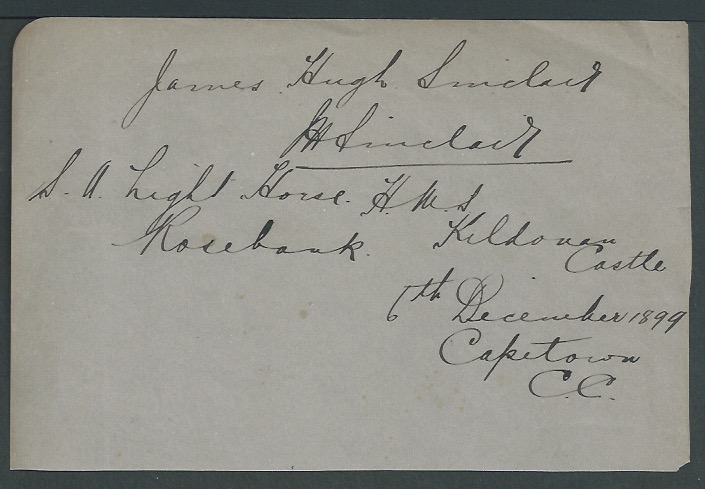 James Hugh Sinclair
JH Sinclair
S. A. Light Horse. H.M.S
Rosebank. Kildonan
Castle
6th December 1899
Capetown
C.C.